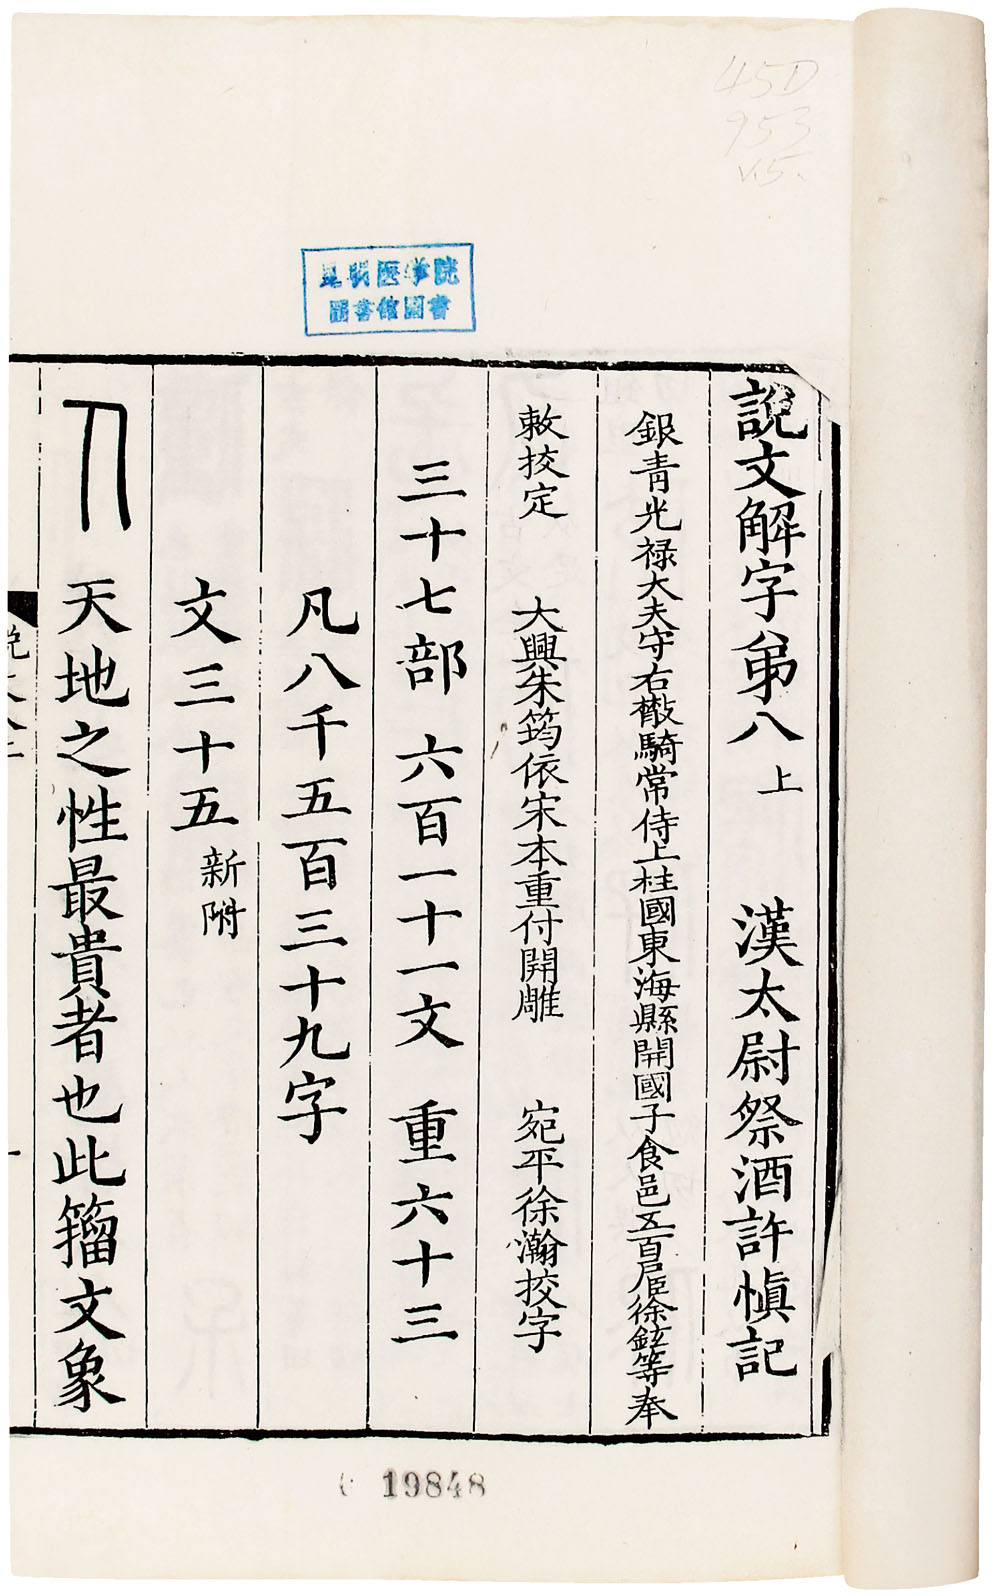 45D
953
v.5.
昆明医学院
圖書館圖書
說文解字弟八 上 漢太尉祭酒許慎記
銀青光禄大夫守右散騎常侍上柱國東海縣開國子食邑五百戶臣徐鉉等奉
敕挍定 大興朱筠依宋本重付開雕 宛平徐瀚挍字
三十七部 六百一十一文 重六十三
凡八千五百三十九字
文三十五 新附
天地之性最貴者也此籀文象
19848